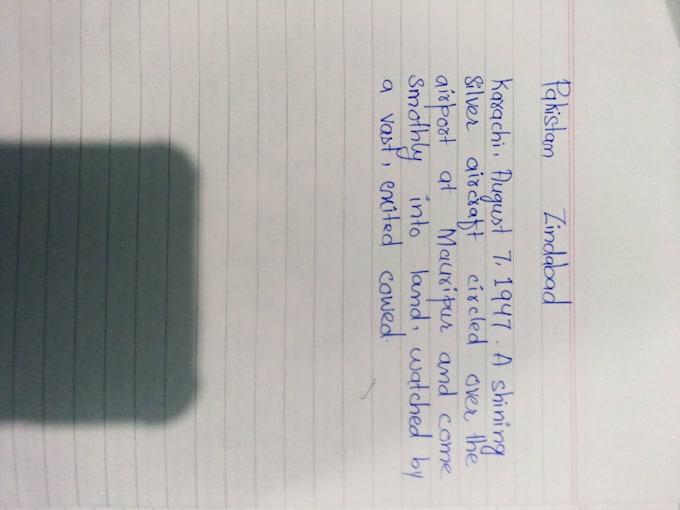 Pakistam Zindabad
Karachi, August 7, 1947. A shining
silver aircraft circled over the
airport at Mauripur and come
smothly into land, watched by
a vast, exited cowed.